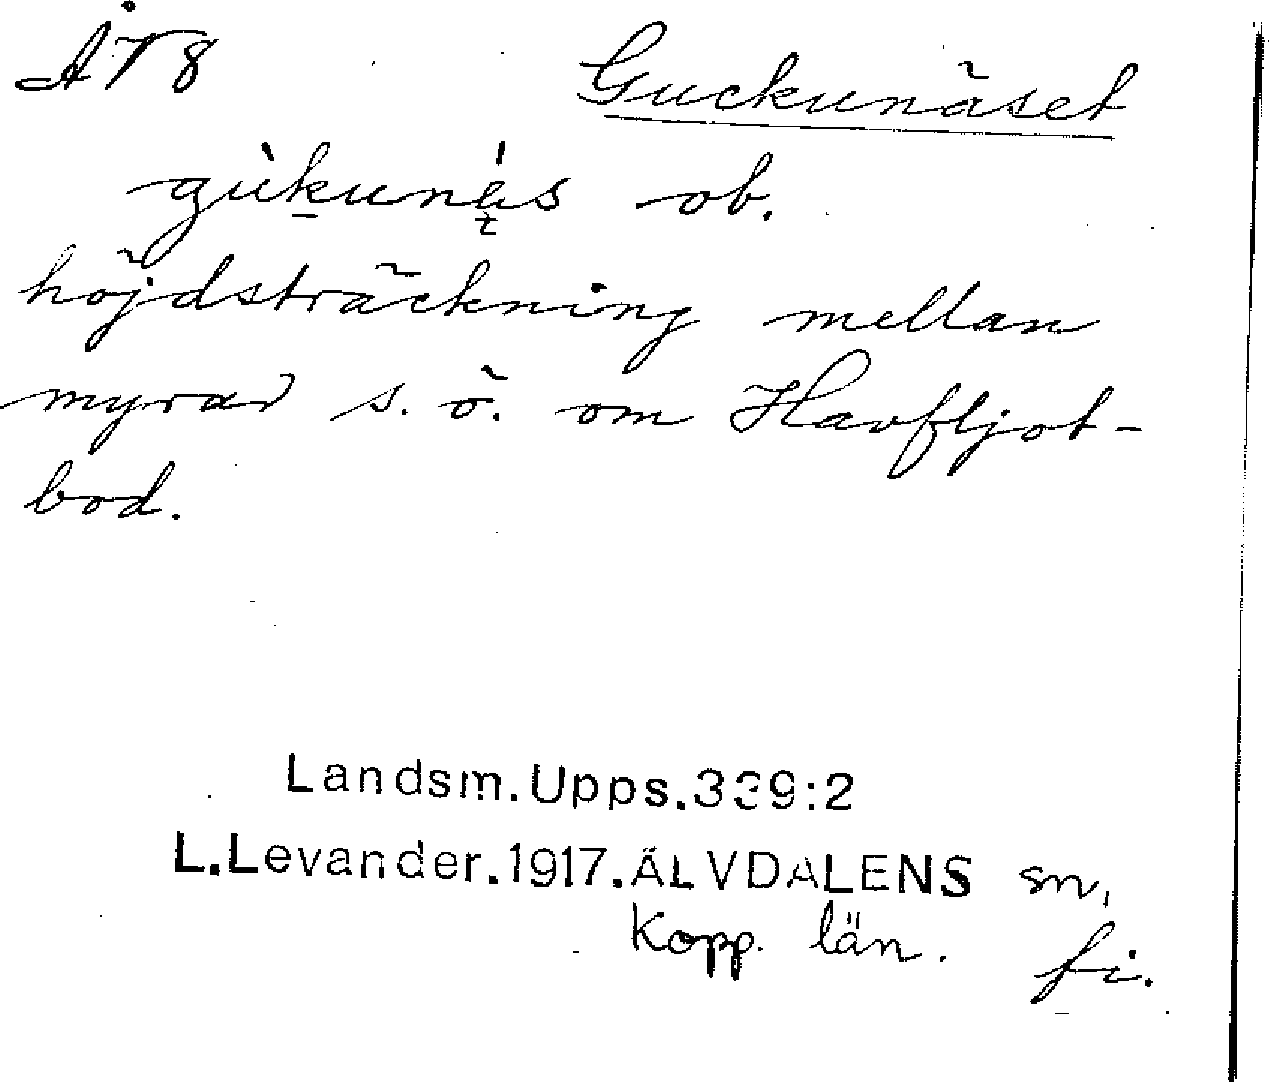 ÅT8 Guckunäset
gùkunás ob.
höjdsträckning mellan
myrar s.ö. om Havfljot-
bod.
Landsm.Upps.339:2
L.Levander.1917.ÄLVDALENS sn,
Kopp. län. fi.